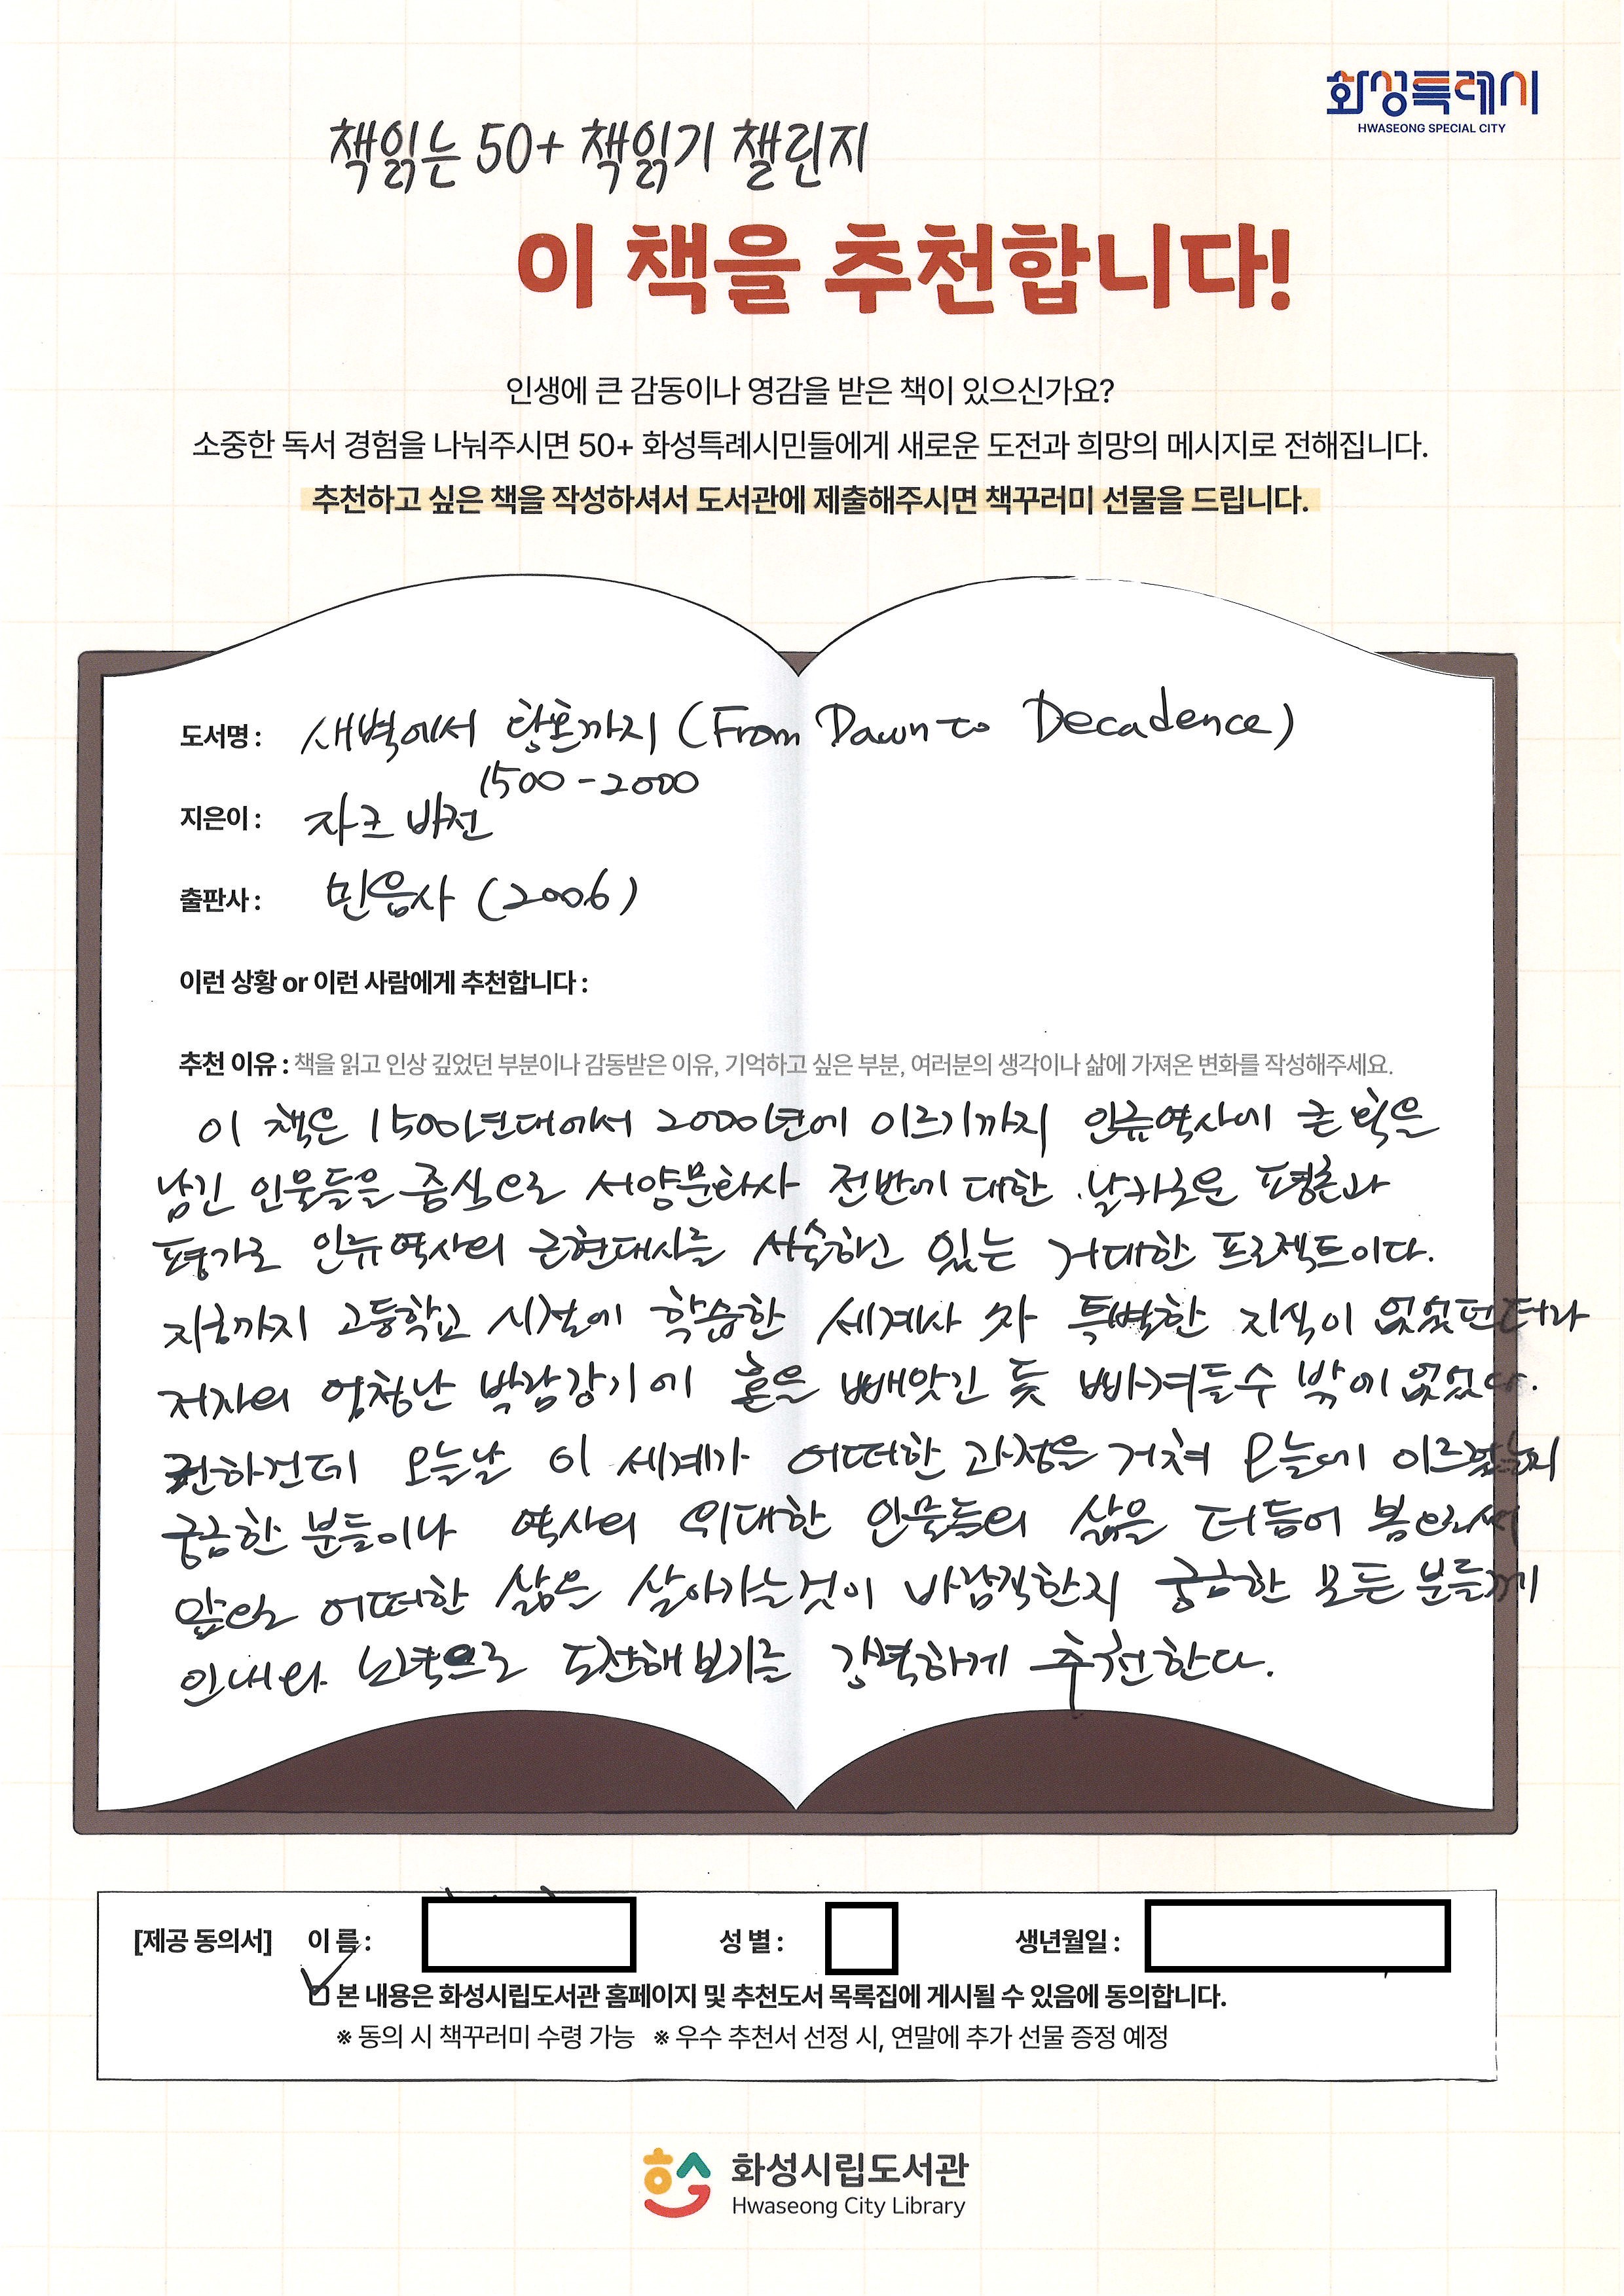 화성특례시
HWASEONG SPECIAL CITY
책읽는 50+ 책읽기 챌린지
이 책을 추천합니다!
인생에 큰 감동이나 영감을 받은 책이 있으신가요?
소중한 독서 경험을 나눠주시면 50+ 화성특례시민들에게 새로운 도전과 희망의 메시지로 전해집니다.
추천하고 싶은 책을 작성하셔서 도서관에 제출해주시면 책꾸러미 선물을 드립니다.
도서명 : 새벽에서 황혼까지 (From Dawn to Decadence)
1500-2000
지은이 : 자크 바전
출판사 : 민음사 (2006)
이런 상황 or 이런 사람에게 추천합니다 :
추천 이유 : 책을 읽고 인상 깊었던 부분이나 감동받은 이유, 기억하고 싶은 부분, 여러분의 생각이나 삶에 가져온 변화를 작성해주세요.
이 책은 1500년대에서 2000년에 이르기까지 인류역사에 큰 획을
남긴 인물들을 중심으로 서양문화사 전반에 대한 날카로운 평론과
평가로 인류역사의 근현대사를 서술하고 있는 거대한 프로젝트이다.
지금까지 고등학교 시절에 학습한 세계사 외 특별한 지식이 없었던터라
저자의 엄청난 박람강기에 혼을 빼앗긴 듯 빠져들수 밖에 없었다.
권하건데 오늘날 이 세계가 어떠한 과정을 거쳐 오늘에 이르렀는지
궁금한 분들이나 역사의 위대한 인물들의 삶을 더듬어 봄으로써
앞으로 어떠한 삶을 살아가는것이 바람직한지 궁금한 모든 분들께
인내와 노력으로 도전해보기를 강력하게 추천한다.
[제공 동의서] 이 름 : 성 별 : 생년월일 :
본 내용은 화성시립도서관 홈페이지 및 추천도서 목록집에 게시될 수 있음에 동의합니다.
※ 동의 시 책꾸러미 수령 가능 ※ 우수 추천서 선정 시, 연말에 추가 선물 증정 예정
화성시립도서관
Hwaseong City Library